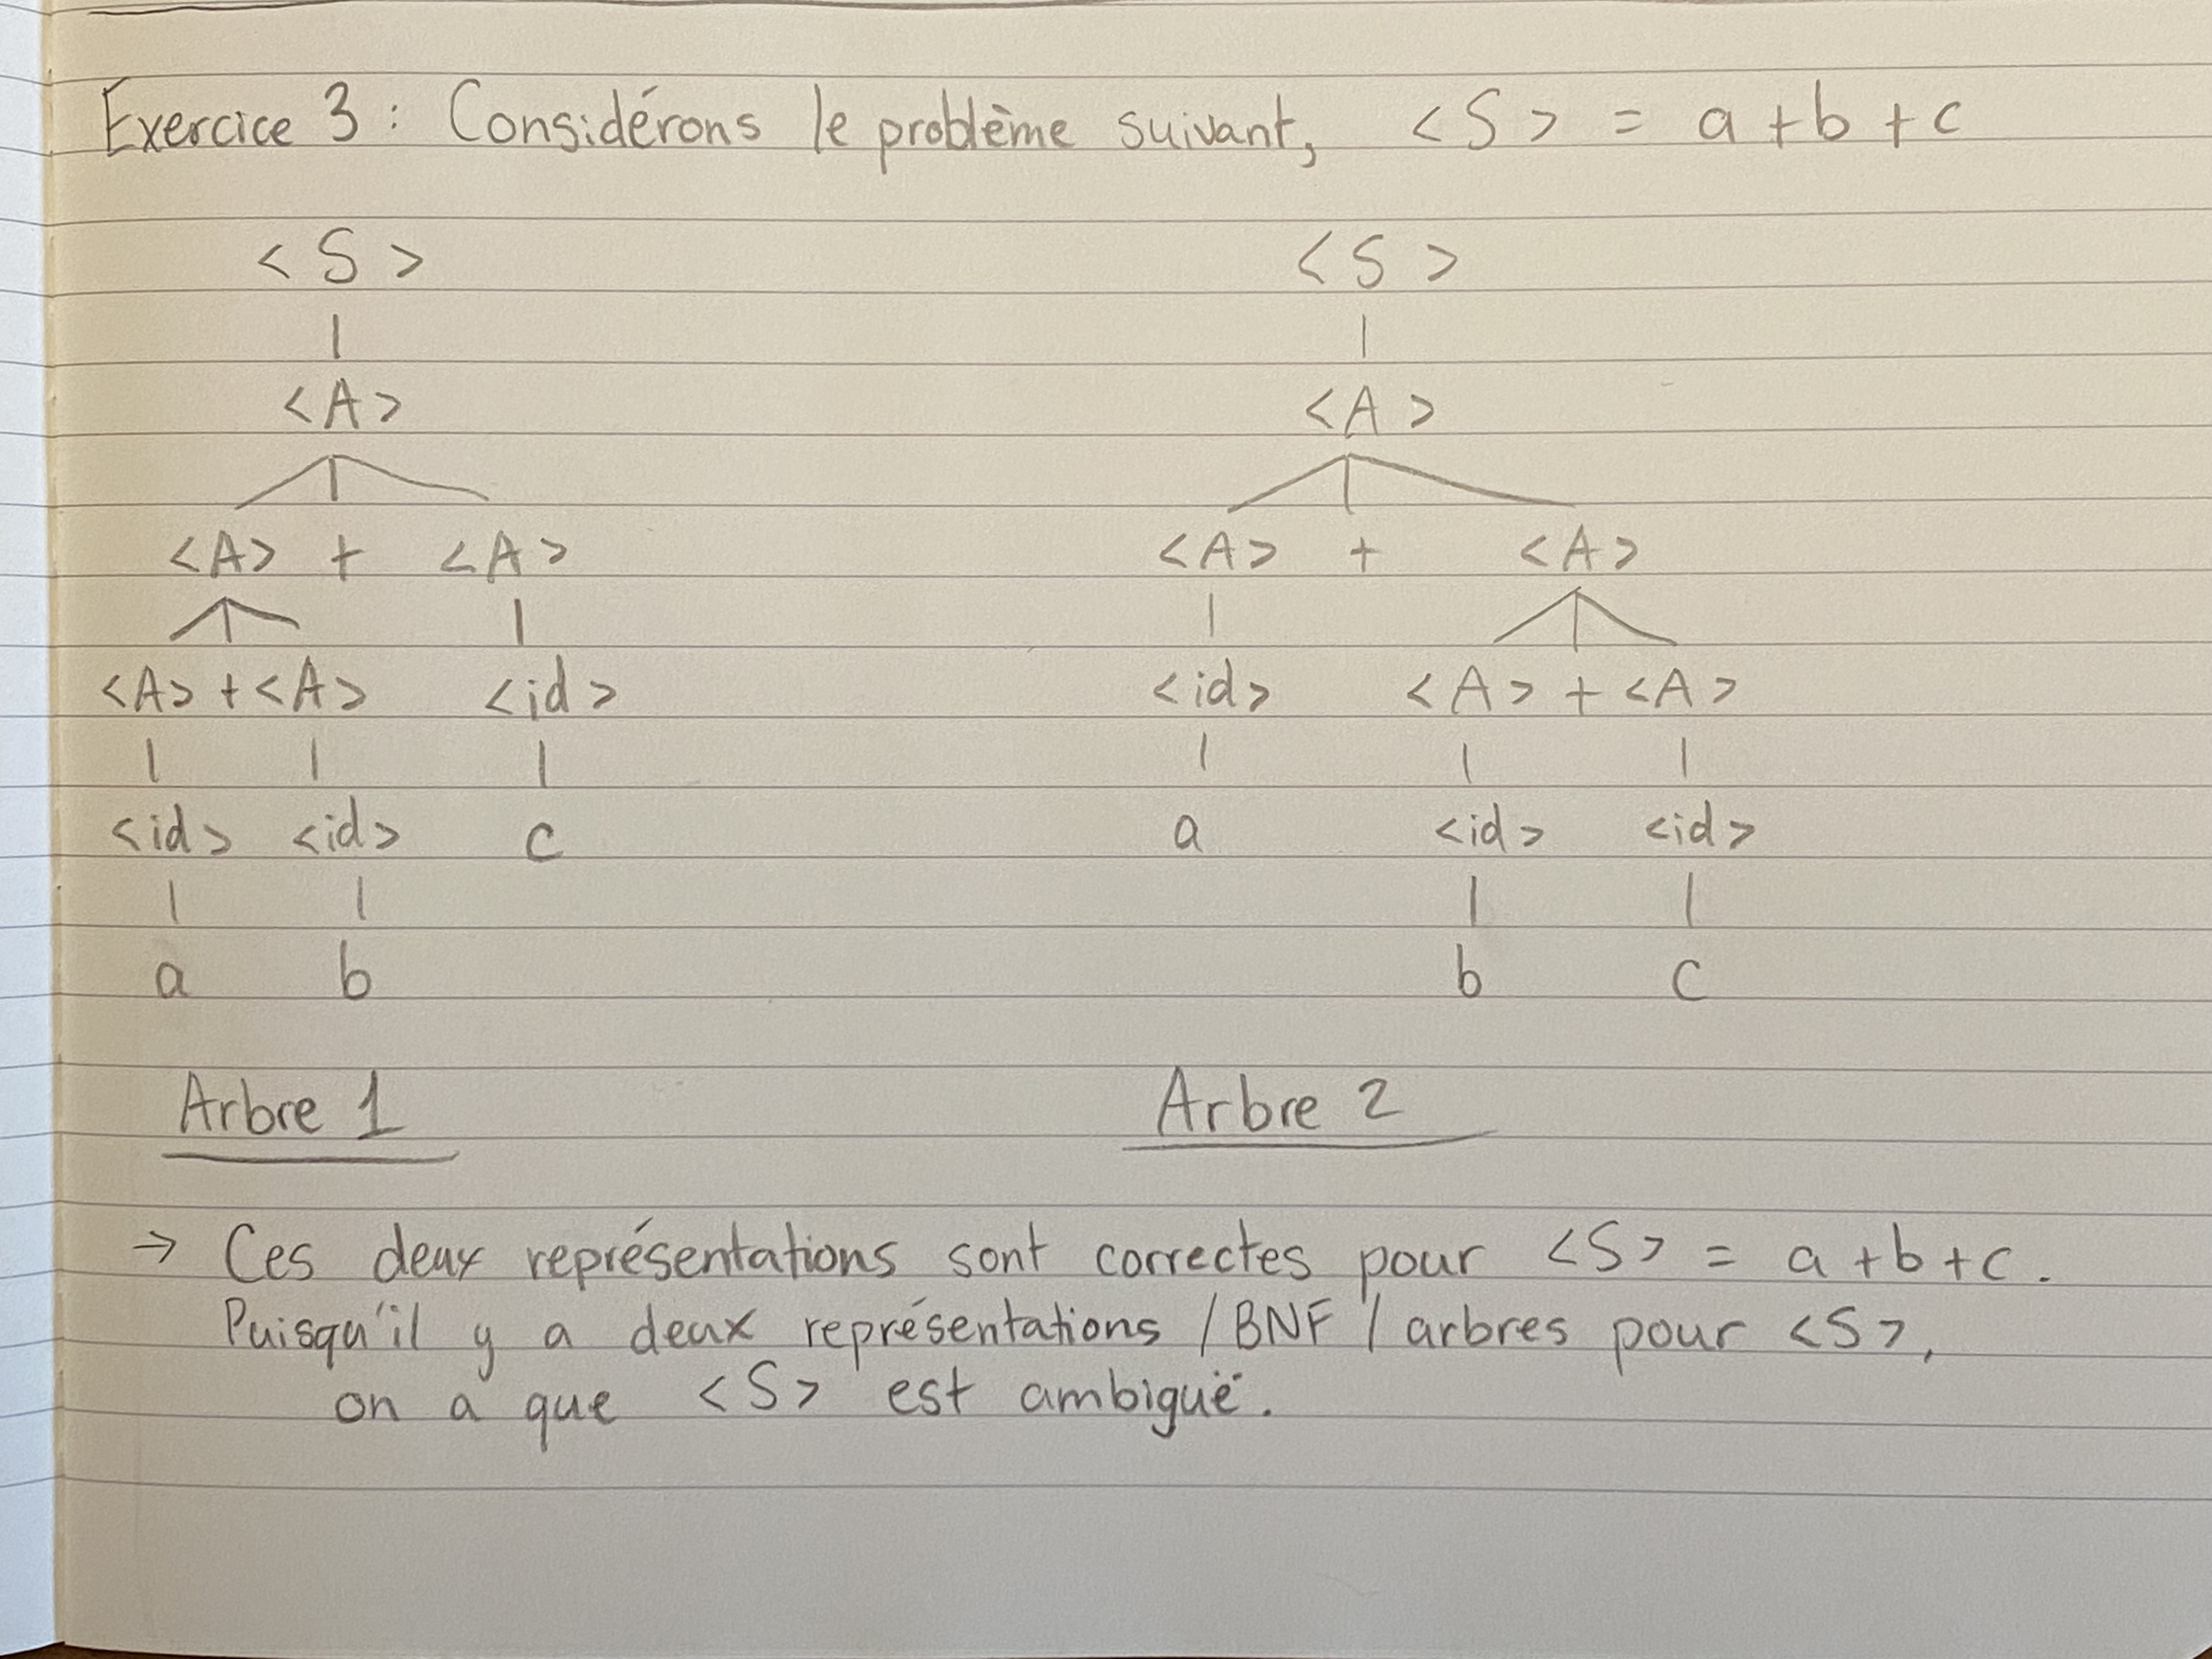 Exercice 3 : Considérons le problème suivant, <S> = a+b+c
<S> <S>
| |
<A> <A>
<A> + <A> <A> + <A>
<A> + <A> <id> <id> <A> + <A>
<id> <id> c a <id> <id>
a b b c
Arbre 1 Arbre 2
→ Ces deux représentations sont correctes pour <S> = a+b+c.
Puisqu'il y a deux représentations / BNF / arbres pour <S>,
on a que <S> est ambiguë.